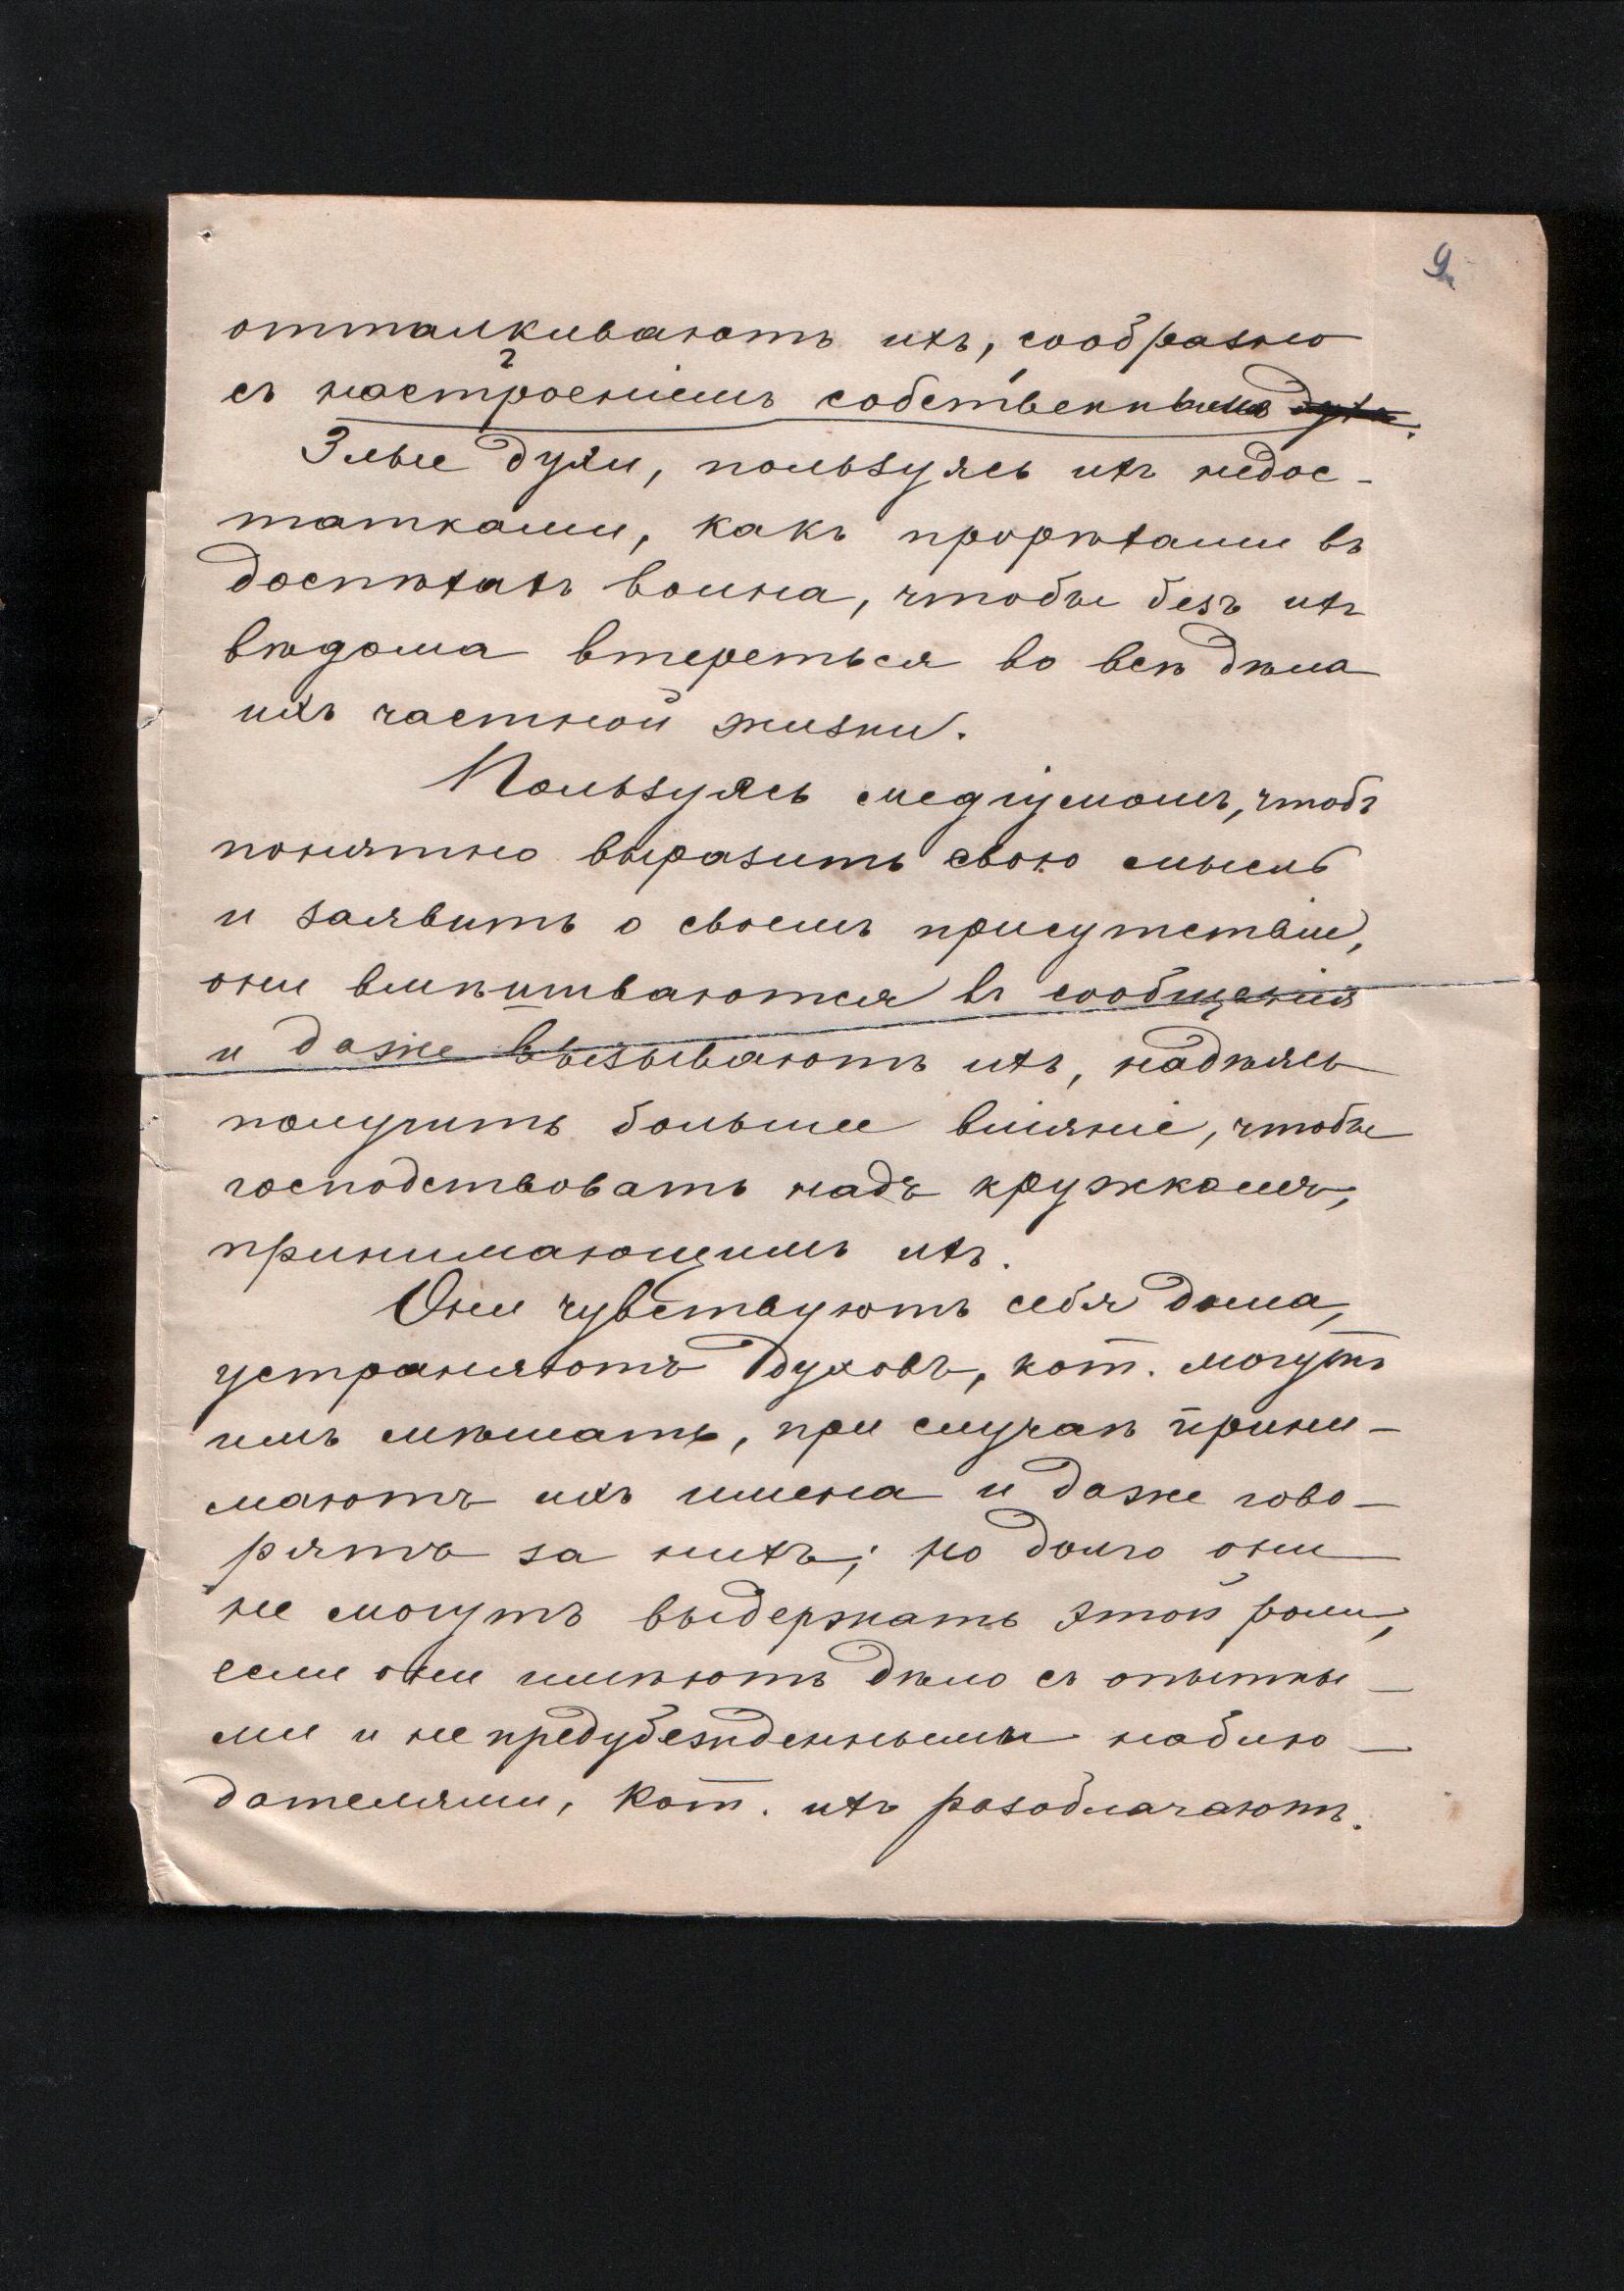 9
отталкиваютъ ихъ, сообразно
съ настроеніемъ собственнымъ
Злые духи, пользуясь ихъ недос-
татками, какъ прорѣхами въ
доспѣхахъ воина, чтобы безъ ихъ
вѣдома втереться во всѣ дѣла
ихъ частной жизни.
Пользуясь медіумомъ, чтобъ
понятно выразить свою мысль
и заявить о своемъ присутствіи,
они вмѣшиваются въ сообщенія
и даже вызываютъ ихъ, надѣясь
получить большее вліяніе, чтобы
господствовать надъ кружкомъ,
принимающимъ ихъ.
Они чувствуютъ себя дома,
устраняютъ духовъ, кот. могутъ
имъ мѣшать, при случаѣ прини-
маютъ ихъ имена и даже гово-
рятъ за нихъ; но долго они
не могутъ выдержать этой роли,
если они имѣютъ дѣло съ опытны-
ми и не предубежденными наблю-
дателями, кот. ихъ разоблачаютъ.